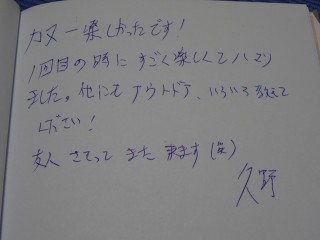 カヌー楽しかったです!
1回目の時にすごく楽しくてハマり
ました。他にもアウトドア、いろいろ教えて
ください!
友人 さそって また 来ます(笑)
久野